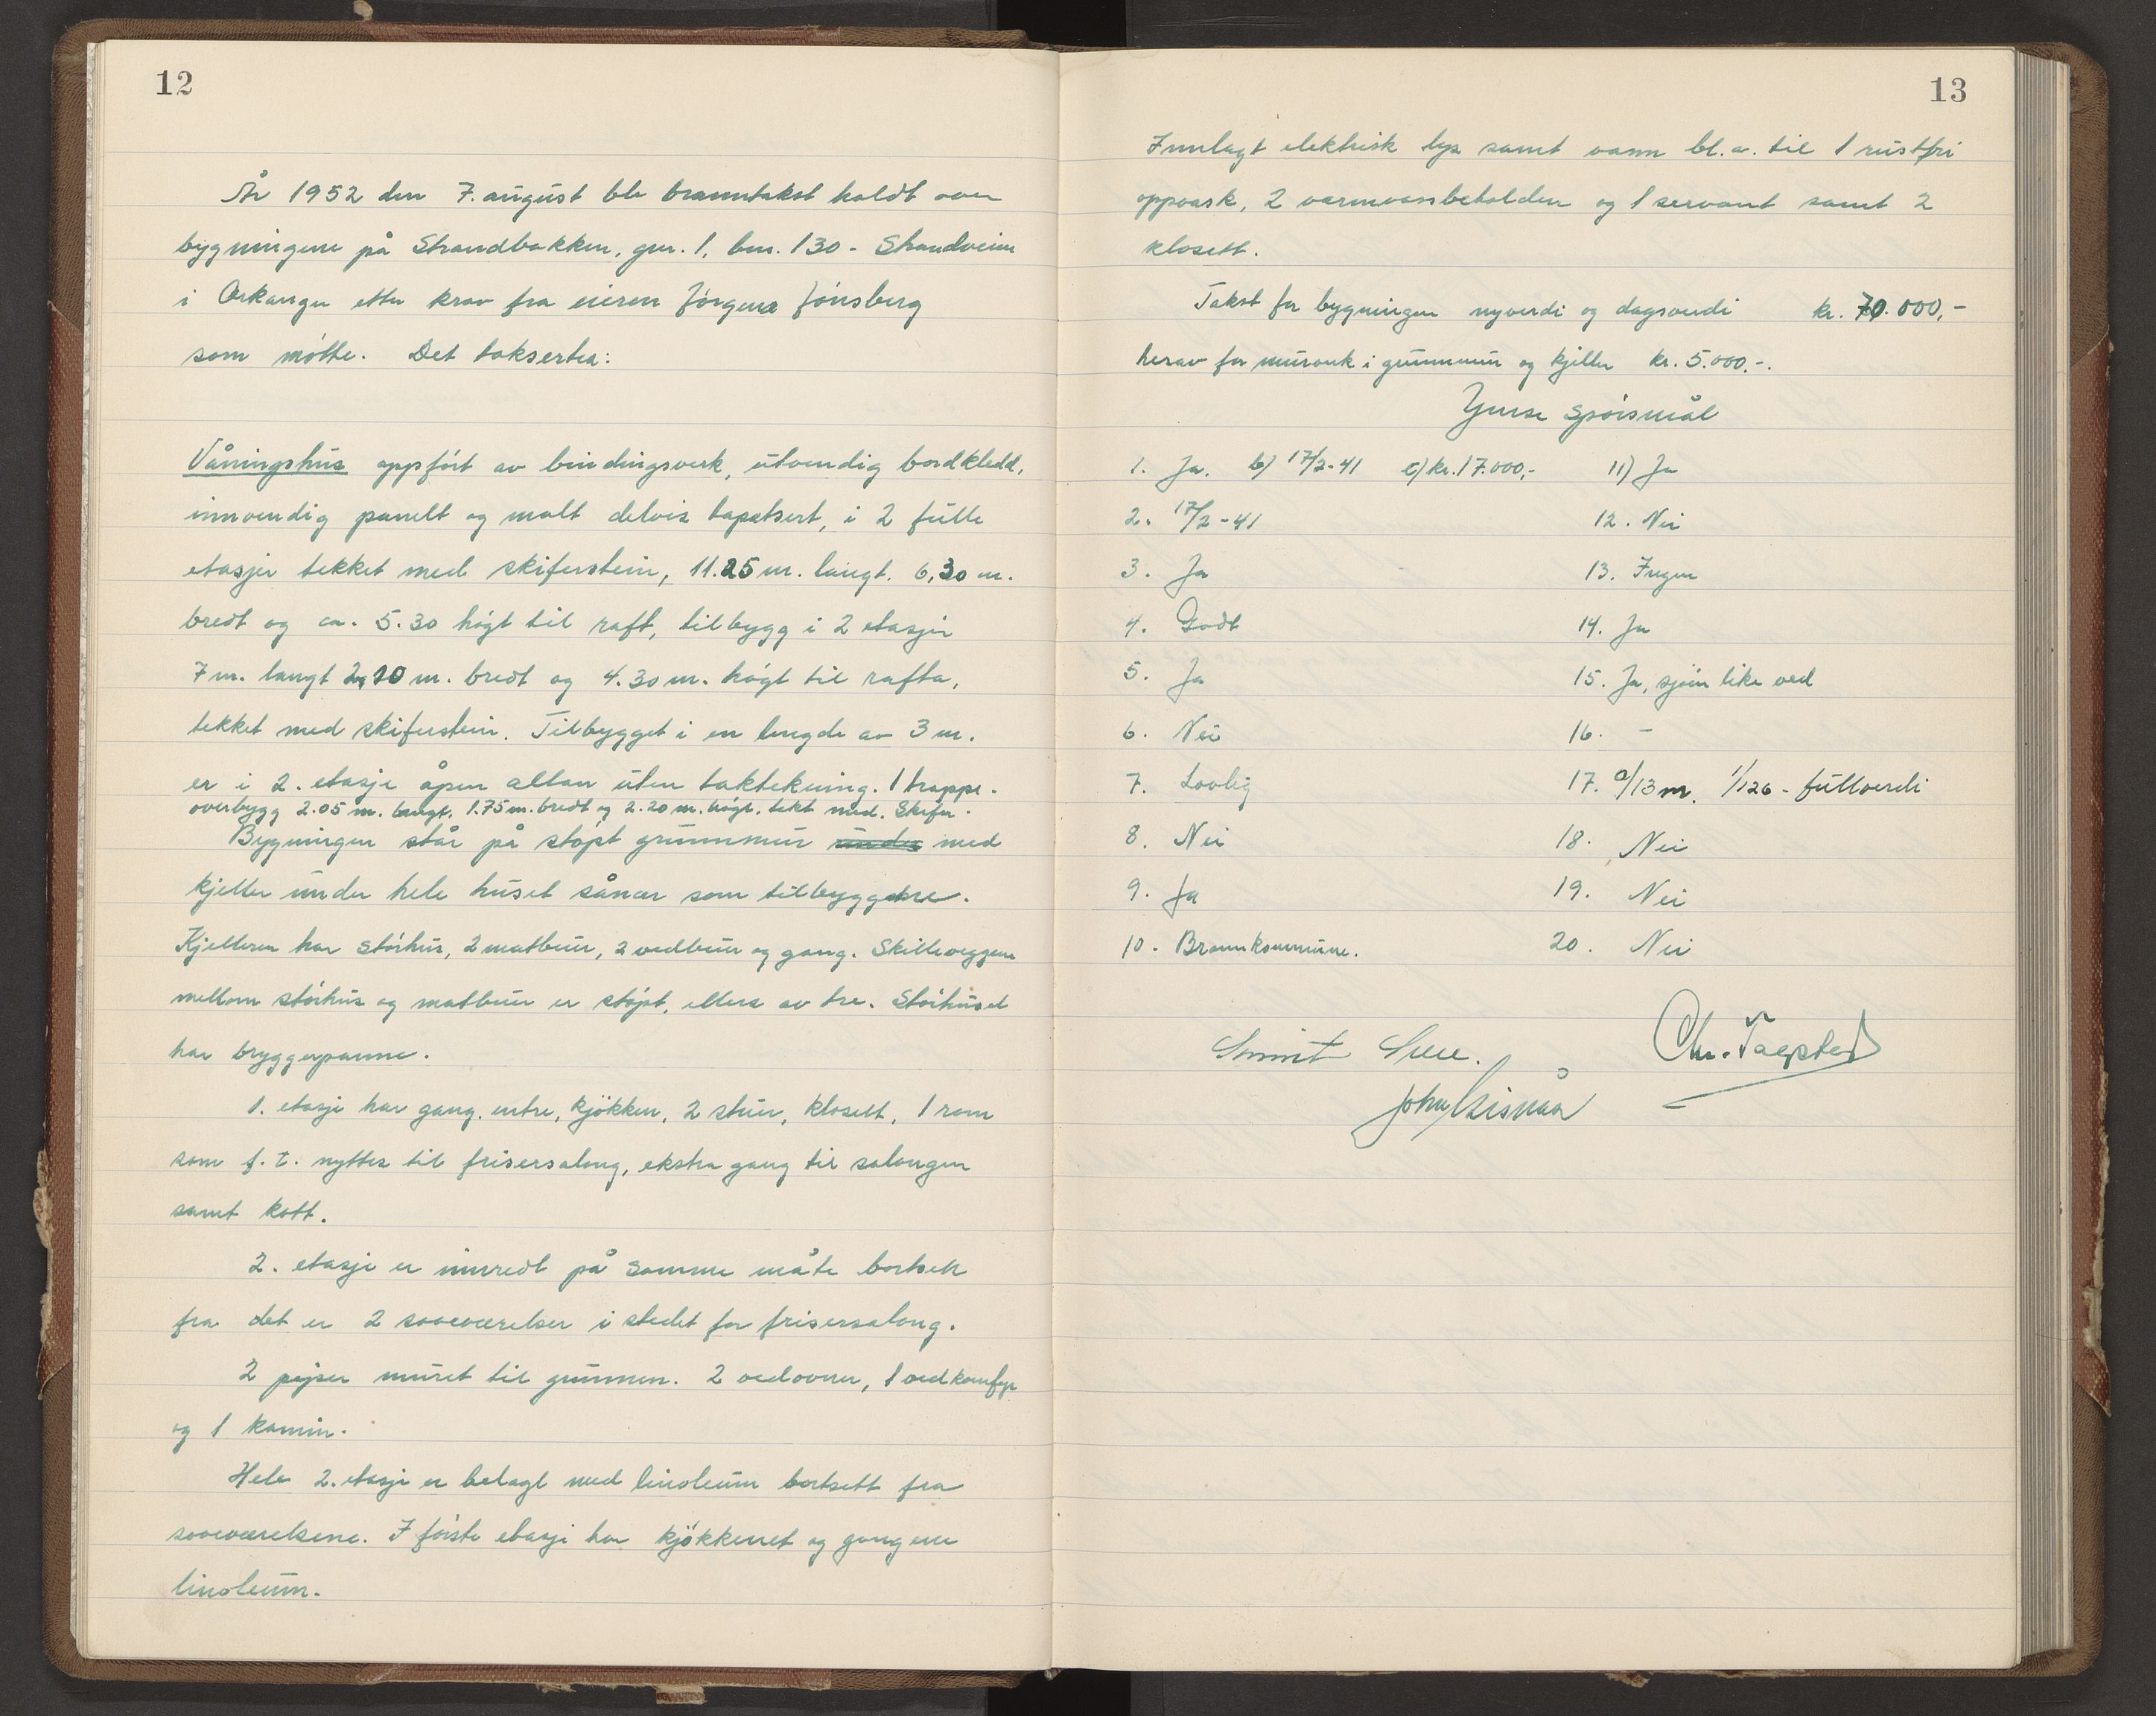 12
År 1952 den 7. august ble branntakst holdt over
bygningene på Strandbakken, gnr. 1, bnr. 130 - Strandveien
i Orkanger etter krav fra eieren Jørgen Jønsberg
som møtte. Det takseres:
Våningshus oppført av bindingsverk, utvendig bordkledd,
innvendig panelt og malt delvis tapetsert, i 2 fulle
etasjer tekket med skiferstein, 11.25 m. langt. 6,30 m.
bredt og ca. 5.30 høgt til raft, tilbygg i 2 etasjer
7 m. langt 2,10 m. bredt og 4.30 m. høgt til rafta,
tekket med skiferstein. Tilbygget i en lengde av 3 m.
er i 2. etasje åpen altan uten taktekning. 1 trappe-
overbygg 2.05 m. langt, 1.75 m. bredt og 2.20 m. høgt. tekt med. Skifer.
Bygningen står på støpt grunnmur under med
kjeller under hele huset sånær som tilbyggene.
Kjelleren har størhus, 2 matbuer, 2 vedbuer og gang. Skilleveggene
mellom størhus og matbuer er støpt, ellers av tre. Størhuset
har bryggerpanne.
1. etasje har gang, entre, kjøkken, 2 stuer, klosett, 1 rom
som f. t. nyttes til frisersalong, ekstra gang til salongen
samt kott.
2. etasje er innredt på samme måte bortsett
fra det er 2 soveværelser i stedet for frisersalong.
2 pejser muret til grunnen. 2 vedovner, 1 vedkomfyr
og 1 kamin.
Hele 2. etasje er belagt med linoleum bortsett fra
soveværelsene. I første etasje har kjøkkenet og gangene
linoleum.
13
Innlagt elektrisk lys samt vann bl.a. til 1 rustfri
oppvask, 2 varmvannsbeholdere og 1 servant samt 2
klosett.
Takst for bygningen nyverdi og dagsverdi kr. 70.000,-
herav for murverk i grunnmur og kjeller kr. 5.000.-.
Ymse spørsmål
1. Ja. b) 17/2-41 c) kr. 17.000,- 11) Ja
2. 17/2-41 12. Nei
3. Ja 13. Ingen
4. Godt 14. Ja
5. Ja 15. Ja, sjøen like ved
6. Nei 16. -
7. Lovlig 17. a/13 m. 1/126 - fullverdi
8. Nei 18. Nei
9. Ja 19. Nei
10. Brannkommune. 20. Nei